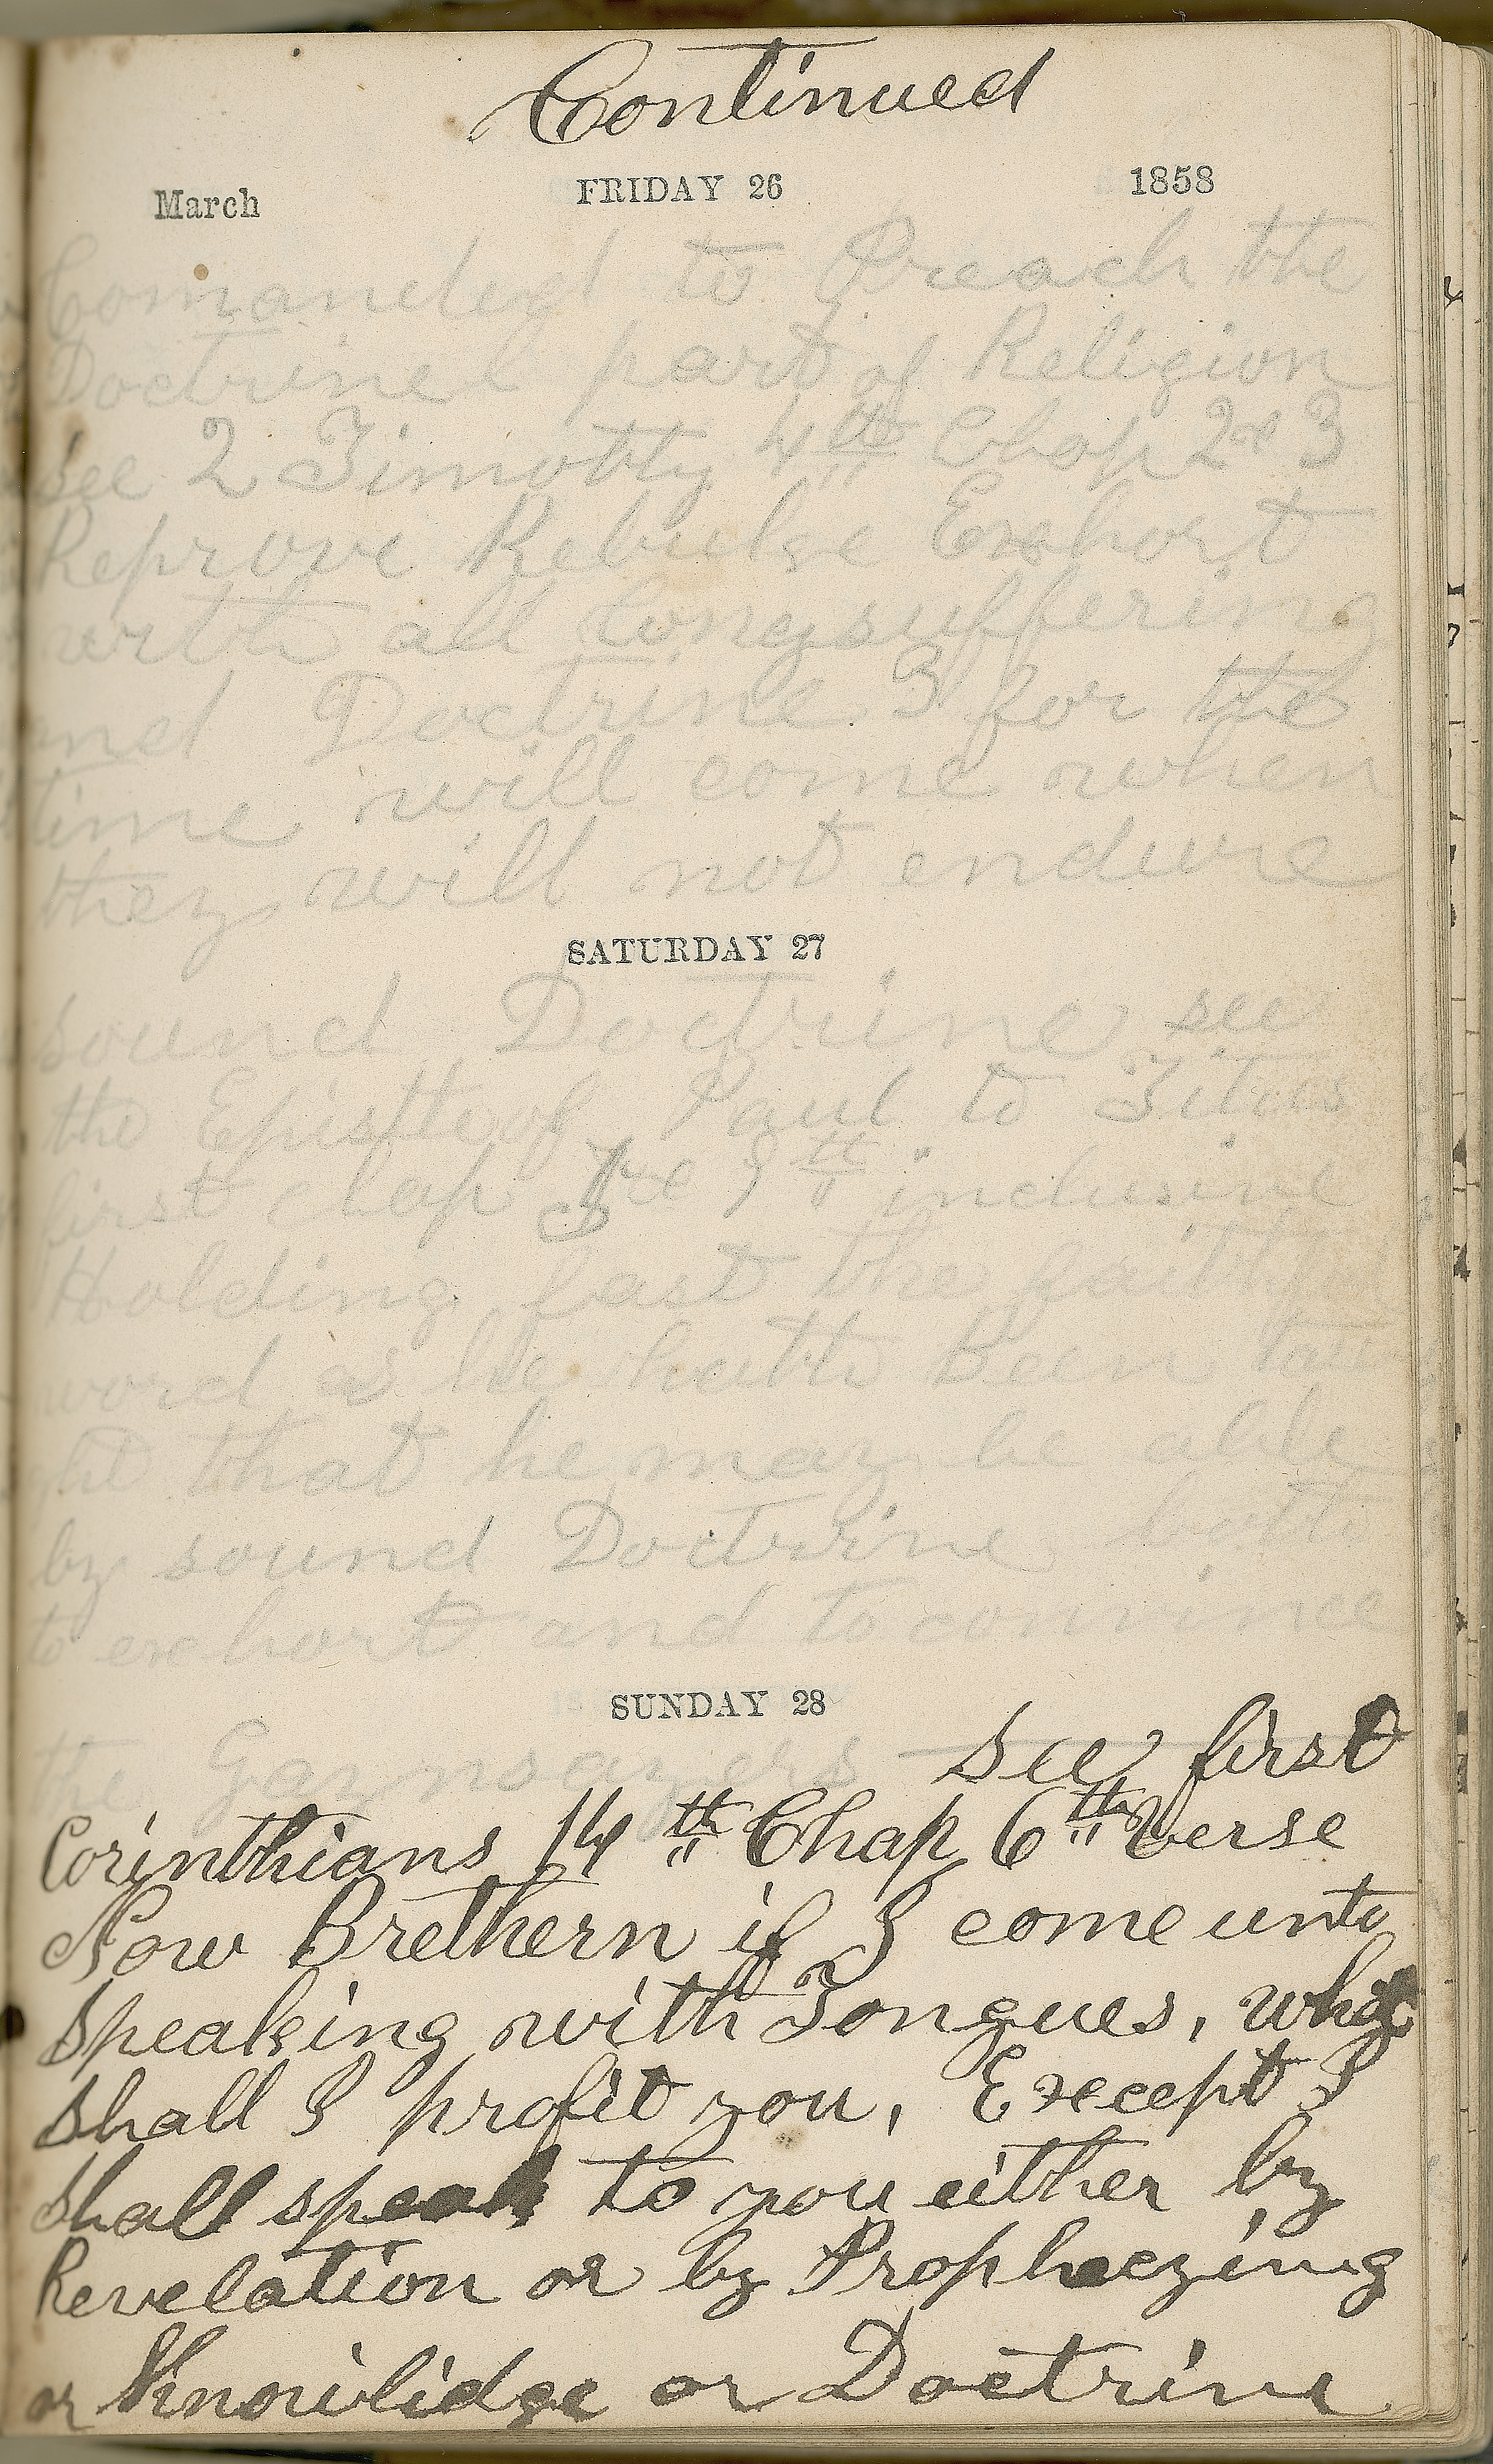 Continued
March FRIDAY 26 1858
Comanded to Preach the
Doctrinel part of Religion
see 2 Timothy 4th Chap 2 & 3
Reprove Rebuke Exhort
with all Longsuffering
and Doctrine 3 for the
time will come when
they will not endure
SATURDAY 27
sound Doctrine see
the Epistle of Paul to Titus
first chap 9th inclusive
Holding fast the faith
word as he hath Been tau
ght that he may be able
by sound Doctrine both
to exhort and to convince
SUNDAY 28
the Gaynsayers see first
Corinthians 14th Chap 6th verse
Now Brethern if I come unto
speaking with Tongues, what
shall I profit you, Except I
shall speak to you either by
Revelation or by Propheezing
or Knowlidge or Doctrine